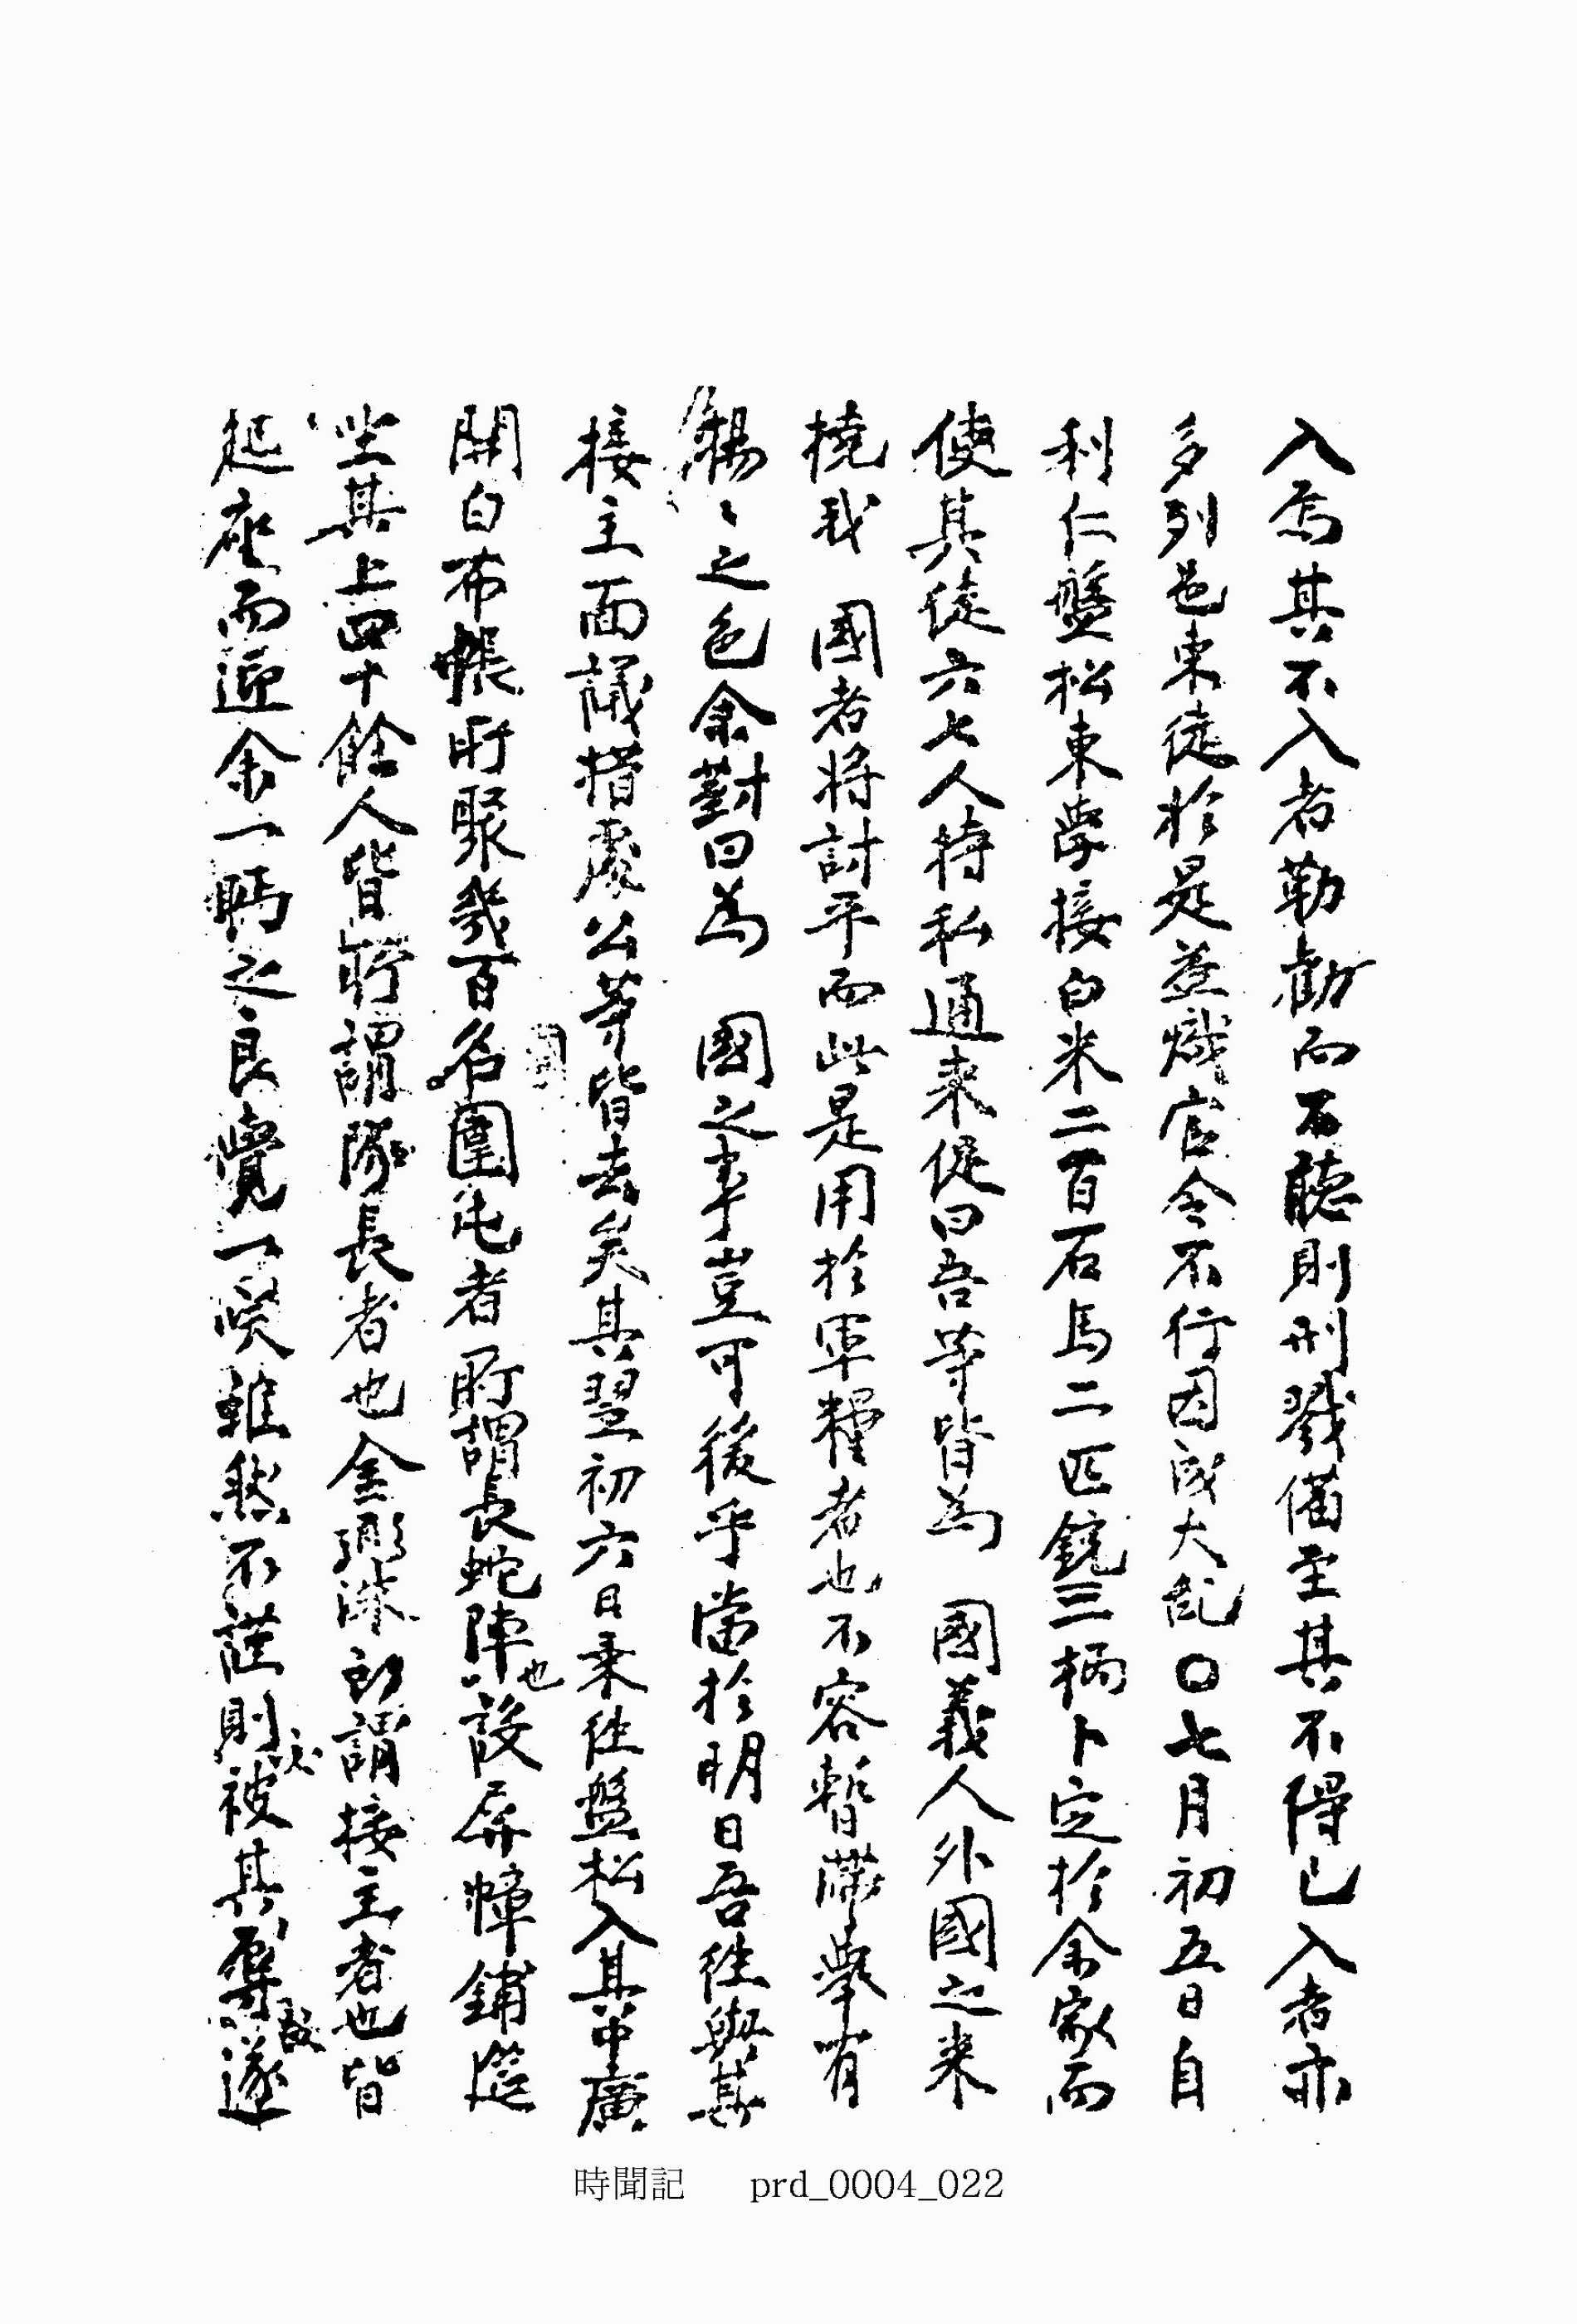 入焉其不入者勒勸而不聽則刑戮備至其不得已入者亦
多列邑東徒於是並熾官令不行因成大亂〇七月初五日自
利仁盤松東學接白米二百石馬二匹銃三柄卜定於余家而
使其徒六七人持私通來促曰吾等皆爲 國義人外國之來
撓我 國者將討平而此是用於軍糧者也不容暫滯擧有
之色余對曰爲 國之事豈可後乎當於明日吾往與其
接主面議措處公等皆去矣其翌初六日乘往盤松入其中廣
開白布帳所聚幾百名圍屯者所謂長蛇陣也設屛幛鋪筵
坐其上四十餘人皆所謂隊長者也金洙所謂接主者也皆
起座而迎余一眄之良覺一哭雖然不誑則必被其辱故遂
時聞記 prd_0004_022